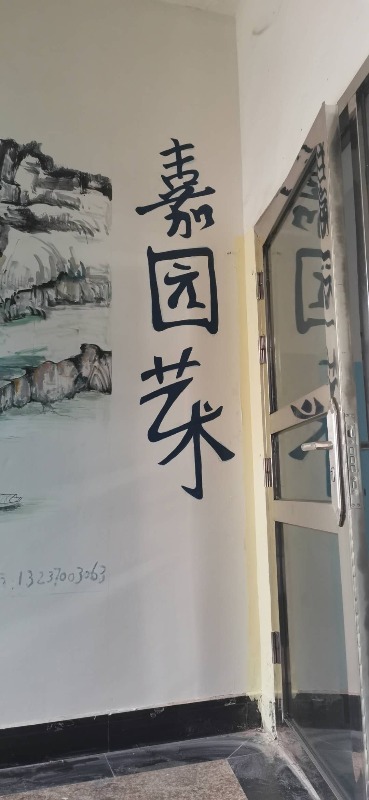 嘉园艺术
13237003063